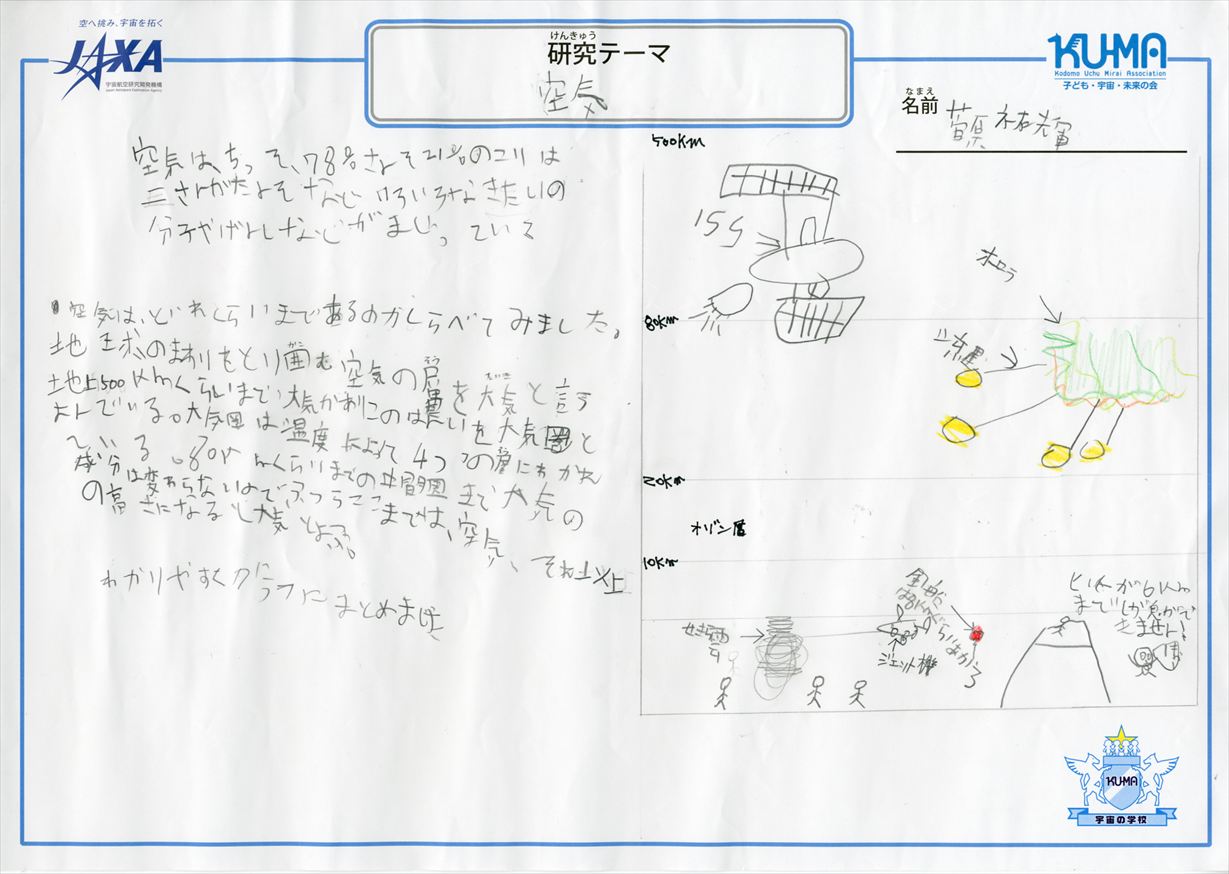 空へ挑み、宇宙を拓く
JAXA
宇宙航空研究開発機構
Japan Aerospace Exploration Agency
けんきゅう
研究テーマ
空気
KU-MA
Kodomo Uchu Mirai Association
子ども・宇宙・未来の会
なまえ
名前
空気は、ちっそ、78%さんそ21%のこりは
二さんかたんそなどいろいろなきたいの
分子やげんしなどがまじっている
空気は、どれくらいまであるのかしらべてみました。
地球のまわりをとり囲む空気の層を大気と言う
地上500kmくらいまで大気があり
よんでいる。大気圏は温度によって4つの層にわかれ
ている。80kmくらいまでの中間圏まで大気の
成分は変わらないのでふつうここまでは、空気、それ以上
の高さになると大気とよぶ。
わかりやすくグラフにまとめました
500km
ISS
オーロラ
80km
流星
20km
オゾン層
10km
雲
ジェット機
ヒトが6km
までしか息がで
きません!
KU-MA
宇宙の学校